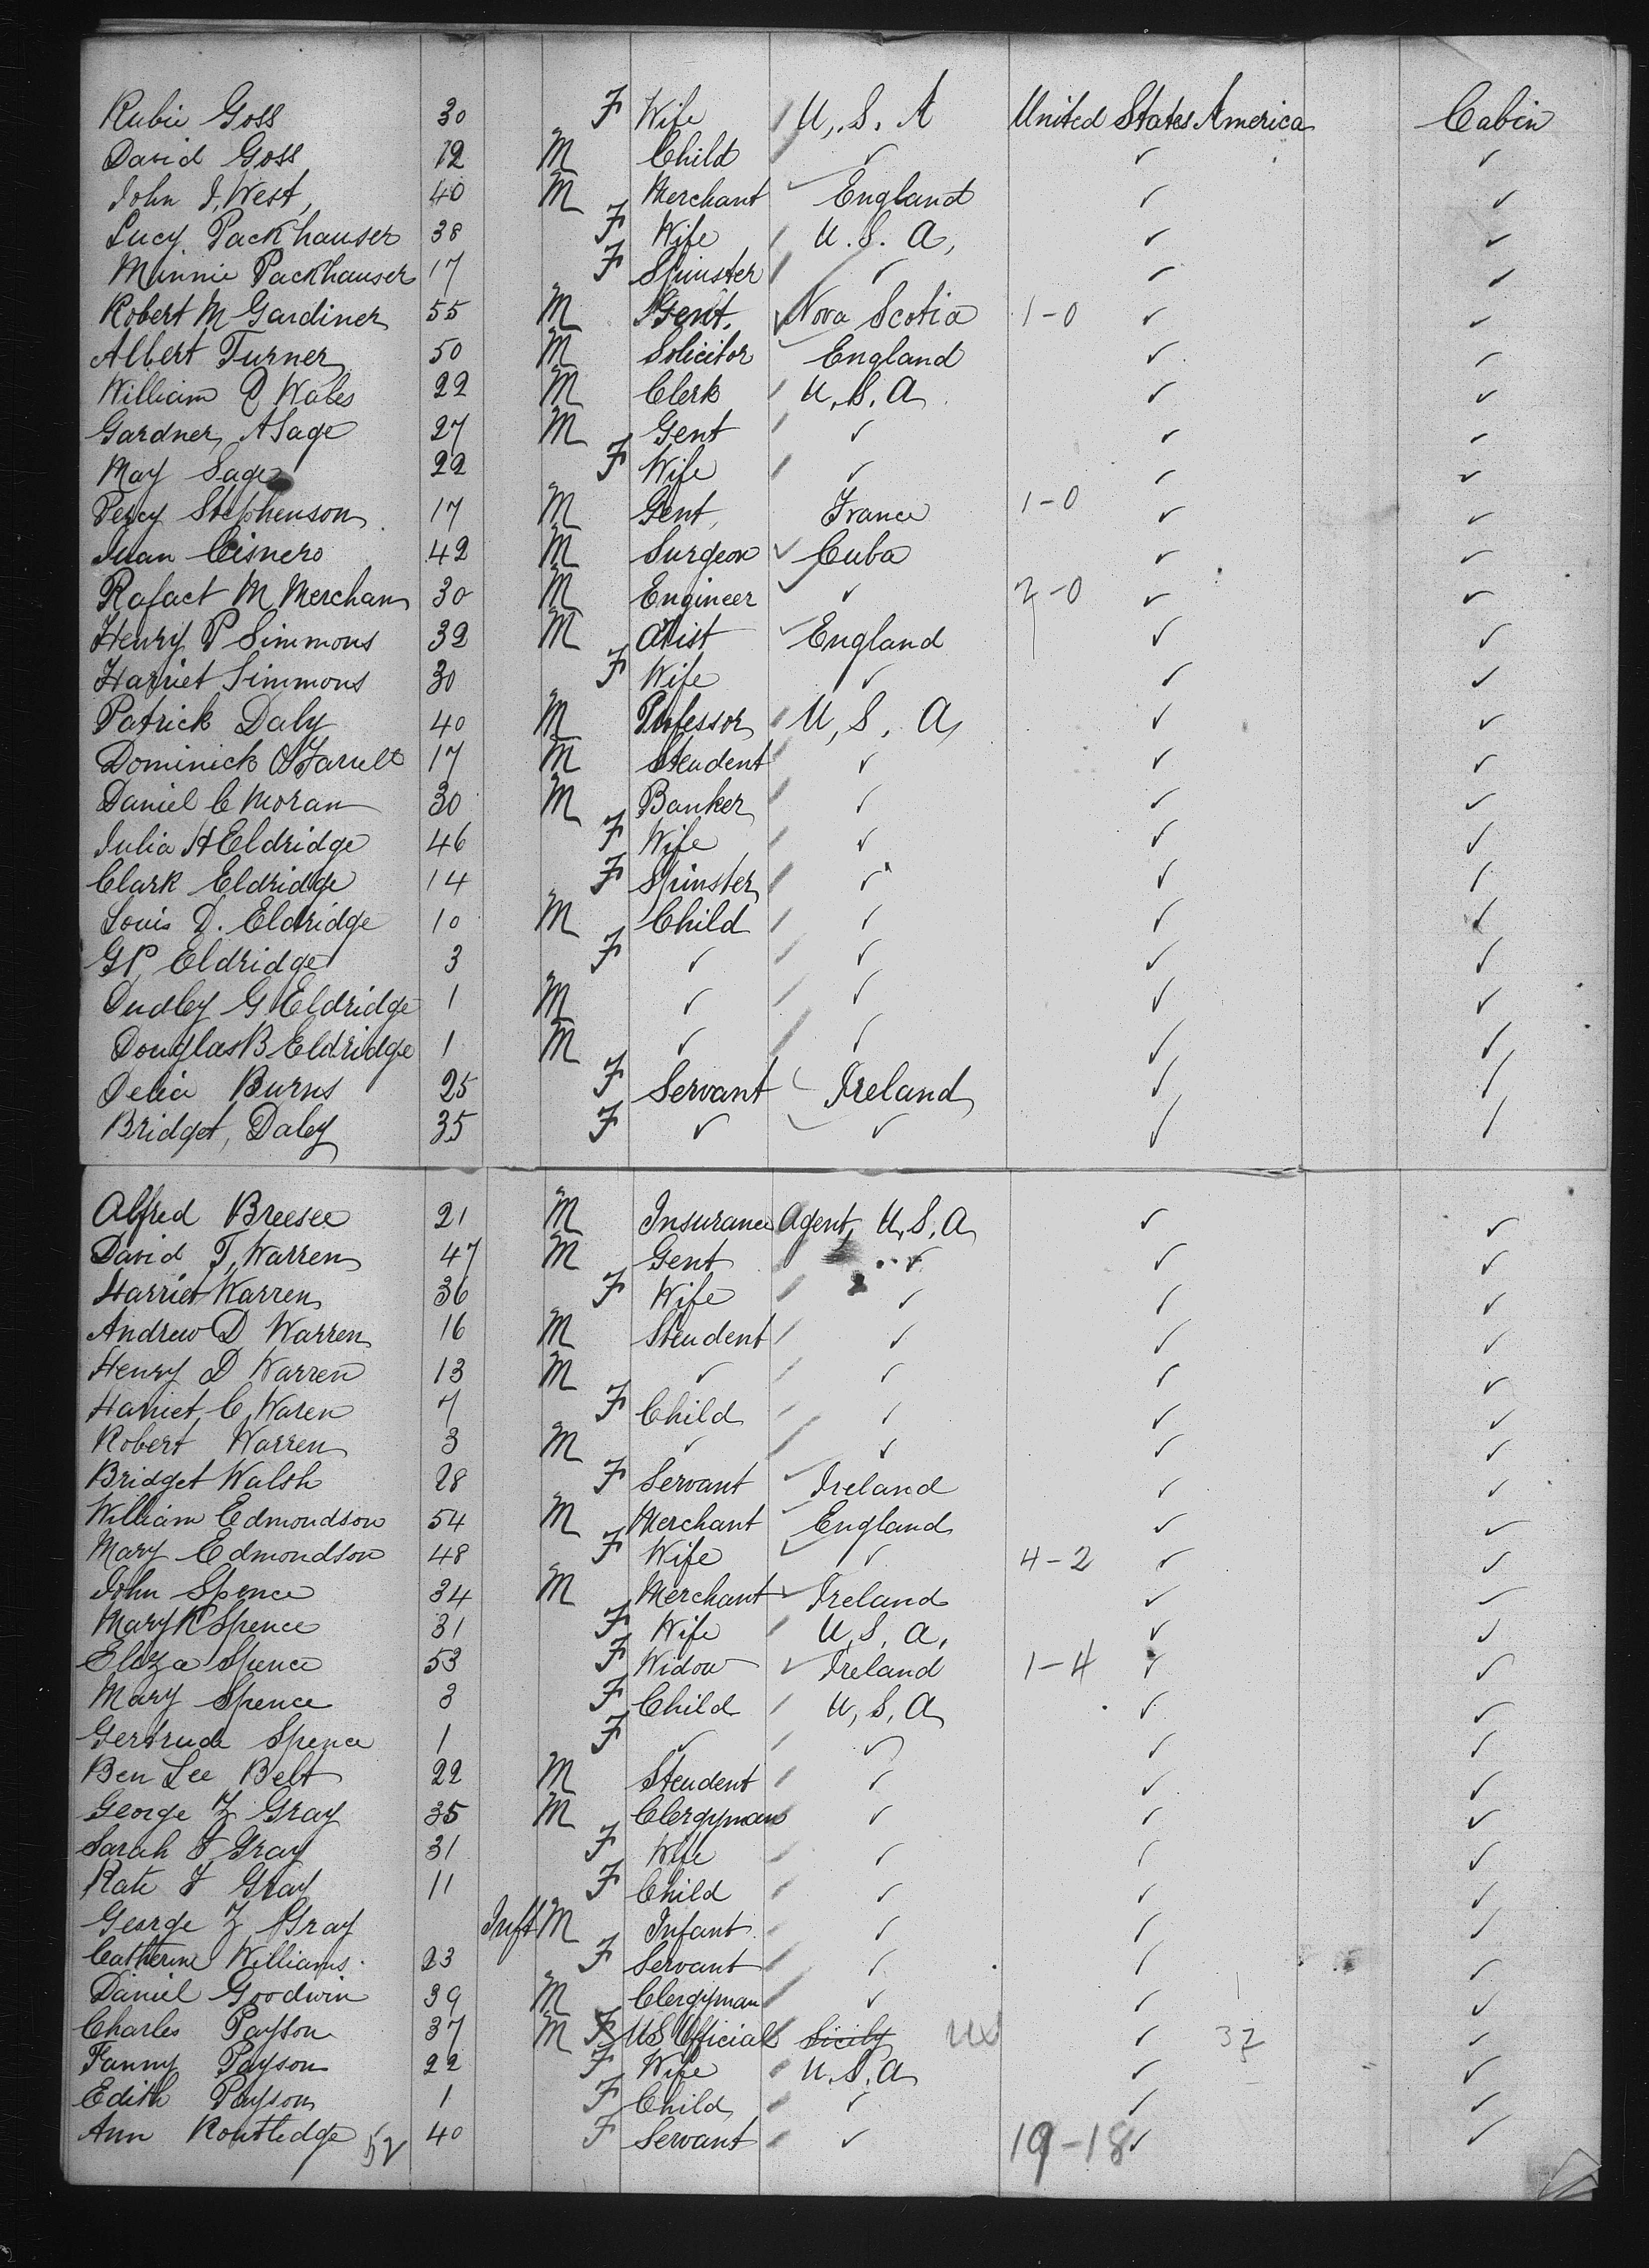 Rubie Goss 30 F Wife U.S.A United States America Cabin
David Goss 12 M Child ✓ ✓ ✓
John J. West, 40 M Merchant England ✓ ✓
Lucy Packhauser 38 F Wife U.S.A, ✓ ✓
Minnie Packhauser 17 F Spinster ✓ ✓ ✓
Robert M Gardiner 55 M Gent. Nova Scotia 1-0 ✓ ✓
Albert Turner 50 M Solicitor England ✓ ✓
William D Wales 22 M Clerk U.S.A ✓ ✓
Gardner A Sage 27 M Gent ✓ ✓ ✓
May Sage 22 F Wife ✓ ✓ ✓
Percy Stephenson 17 M Gent, France 1-0 ✓ ✓
Juan Cisnero 42 M Surgeon Cuba ✓ ✓
Rafact M Merchan 30 M Engineer ✓ 2-0 ✓ ✓
Henry P Simmons 32 M Atist England ✓ ✓
Harriet Simmons 30 F Wife ✓ ✓ ✓
Patrick Daly 40 M Professor U.S.A, ✓ ✓
Dominick O'Farrell 17 M Steudent ✓ ✓ ✓
Daniel C Moran 30 M Banker ✓ ✓ ✓
Julia H Eldridge 46 F Wife ✓ ✓ ✓
Clark Eldridge 14 F Spinster ✓ ✓ ✓
Louis D. Eldridge 10 M Child ✓ ✓ ✓
GP Eldridge 3 F ✓ ✓ ✓ ✓
Dudley G Eldridge 1 M ✓ ✓ ✓ ✓
Douglas B Eldridge 1 M ✓ ✓ ✓ ✓
Delia Burns 25 F Servant Ireland ✓ ✓
Bridget, Daley 35 F ✓ ✓ ✓ ✓
Alfred Breesee 21 M Insurance Agent, U.S.A ✓ ✓
David T, Warren 47 M Gent ✓ ✓ ✓
Harriet Warren 36 F Wife ✓ ✓ ✓
Andrew D Warren 16 M Steudent ✓ ✓ ✓
Henry D Warren 13 M ✓ ✓ ✓ ✓
Harriet C Waren 7 F Child ✓ ✓ ✓
Robert Warren 3 M ✓ ✓ ✓ ✓
Bridget Walsh 28 F Servant Ireland ✓ ✓
William Edmondson 54 M Merchant England ✓ ✓
Mary Edmondson 48 F Wife ✓ 4-2 ✓ ✓
John Spence 34 M Merchant Ireland ✓ ✓
Mary K Spence 31 F Wife U.S.A, ✓ ✓
Eliza Spence 53 F Widow Ireland 1-4 ✓ ✓
Mary Spence 3 F Child U,S,A ✓ ✓
Gertrude Spence 1 F ✓ ✓ ✓ ✓
Ben Lee Belt 22 M Steudent ✓ ✓ ✓
George Z Gray 35 M Clergyman ✓ ✓ ✓
Sarah F Gray 31 F Wife ✓ ✓ ✓
Kate F Gray 11 F Child ✓ ✓ ✓
George Z Gray Inft M Infant ✓ ✓ ✓
Catherine Williams 23 F Servant ✓ ✓ ✓
Daniel Goodwin 39 M Clergyman ✓ ✓ ✓
Charles Payson 37 M F US Official Sicily US ✓ 37 ✓
Fanny Payson 22 F Wife U.S.A ✓ ✓
Edith Payson 1 F Child ✓ ✓ ✓
Ann Routledge 52 40 F Servant ✓ 19-18 ✓ ✓